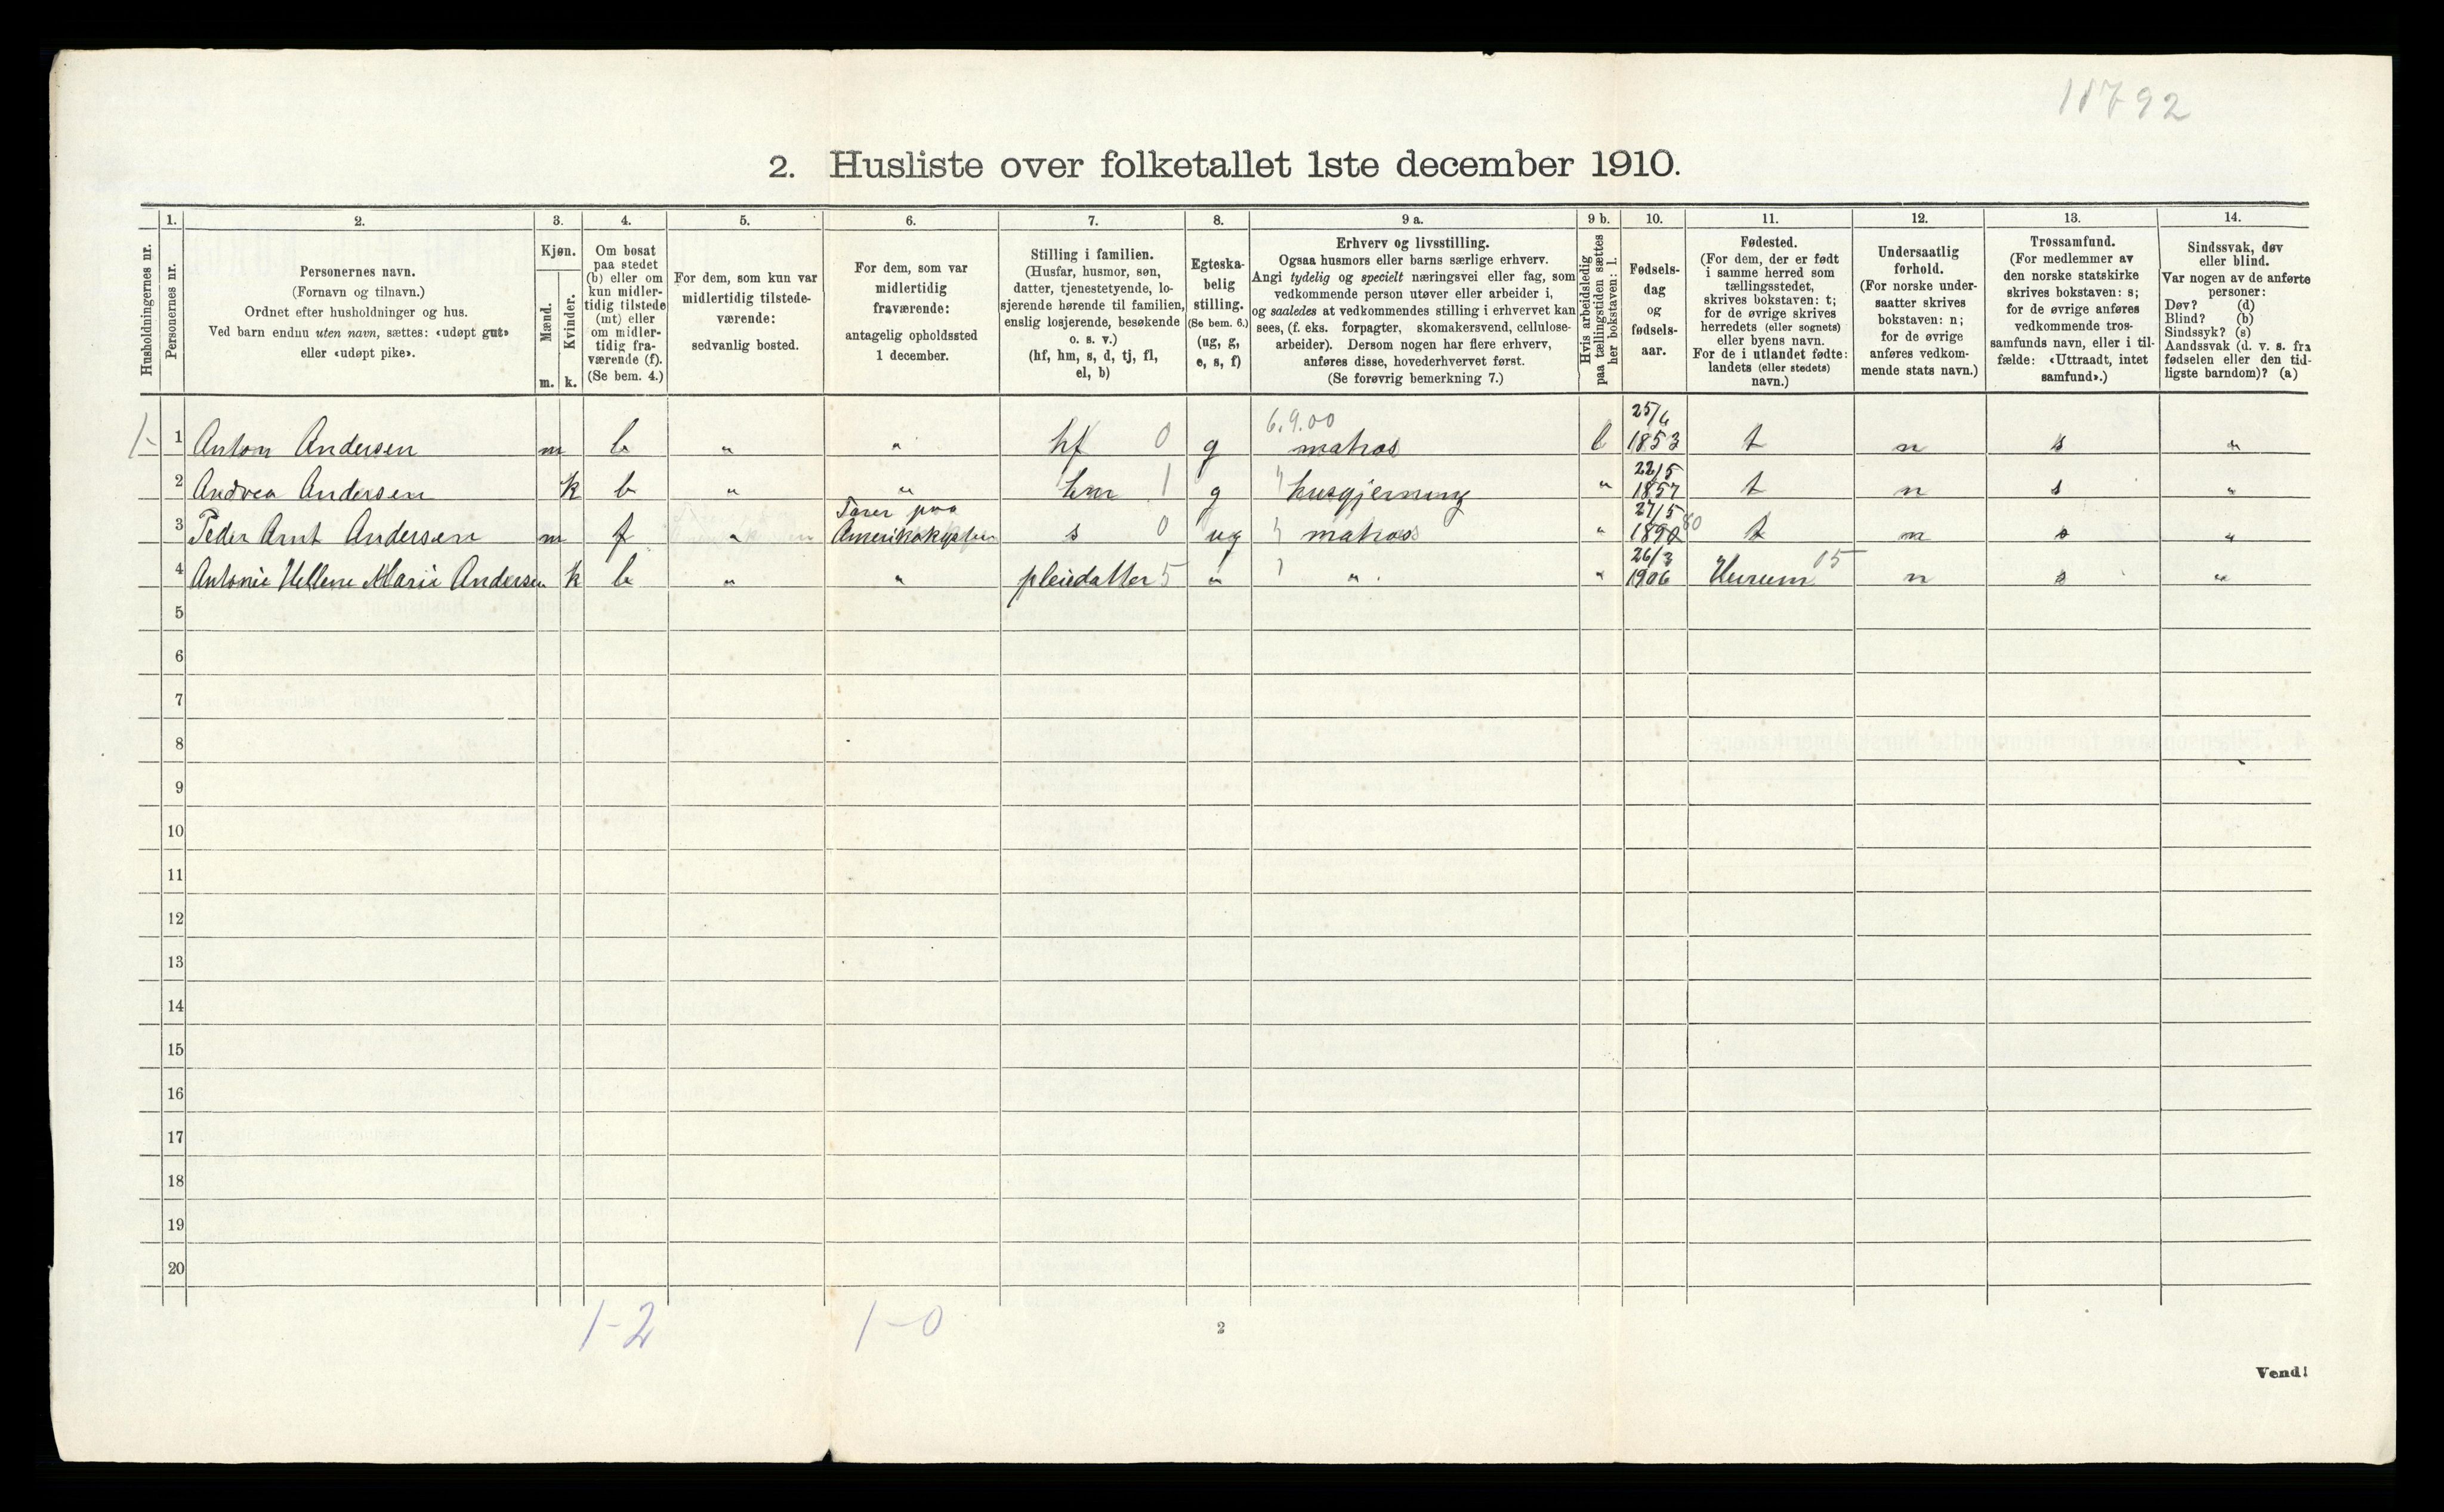 11792
2. Husliste over folketallet 1ste december 1910.
Husholdningernes nr.
1.
Personernes nr.
2.
Personernes navn.
(Fornavn og tilnavn.)
Ordnet efter husholdninger og hus.
Ved barn endnu uten navn, sættes: «udøpt gut»
eller «udøpt pike».
3.
Kjøn.
Mænd.
Kvinder.
m. k.
4.
Om bosat
paa stedet
(b) eller om
kun midler-
tidig tilstede
(mt) eller
om midler-
tidig fra-
værende (f).
(Se bem. 4.)
5.
For dem, som kun var
midlertidig tilstede-
værende:
sedvanlig bosted.
6.
For dem, som var
midlertidig
fraværende:
antagelig opholdssted
1 december.
7.
Stilling i familien.
(Husfar, husmor, søn,
datter, tjenestetyende, lo-
sjerende hørende til familien,
enslig losjerende, besøkende
o. s. v.)
(hf, hm, s, d, tj, fl,
el, b)
8.
Egteska-
belig
stilling.
(Se bem. 6.)
(ug, g,
e, s, f)
9 a.
Erhverv og livsstilling.
Ogsaa husmors eller barns særlige erhverv.
Angi tydelig og specielt næringsvei eller fag, som
vedkommende person utøver eller arbeider i,
og saaledes at vedkommendes stilling i erhvervet kan
sees, (f. eks. forpagter, skomakersvend, cellulose-
arbeider). Dersom nogen har flere erhverv,
anføres disse, hovederhvervet først.
(Se forøvrig bemerkning 7.)
9 b.
Hvis arbeidsledig
paa tællingstiden sættes
her bokstaven: l.
10.
Fødsels-
dag
og
fødsels-
aar.
11.
Fødested.
(For dem, der er født
i samme herred som
tællingsstedet,
skrives bokstaven: t;
for de øvrige skrives
herredets (eller sognets)
eller byens navn.
For de i utlandet fødte:
landets (eller stedets)
navn.)
12.
Undersaatlig
forhold.
(For norske under-
saatter skrives
bokstaven: n;
for de øvrige
anføres vedkom-
mende stats navn.)
13.
Trossamfund.
(For medlemmer av
den norske statskirke
skrives bokstaven: s;
for de øvrige anføres
vedkommende tros-
samfunds navn, eller i til-
fælde: «Uttraadt, intet
samfund».)
14.
Sindssvak, døv
eller blind.
Var nogen av de anførte
personer:
Døv? (d)
Blind? (b)
Sindssyk? (s)
Aandssvak (d. v. s. fra
fødselen eller den tid-
ligste barndom)? (a)
1- 1 Anton Andersen m b " " hf 0 g 6.9.00 matros l 25/6 1853 t n s "
2 Andrea Andersen k b " " hm 1 g " husgjerning " 22/5 1857 t n s "
3 Peder Arnt Andersen m f " Farer paa Amerikakysten s 0 ug " matros " 27/5 1890 80 t n s "
4 Antonie Hellene Marie Andersen k b " " pleiedatter 5 " " " 26/3 1906 Hurum 05 n s "
5
6
7
8
9
10
11
12
13
14
15
16
17
18
19
20
1-2 1-0
2
Vend!